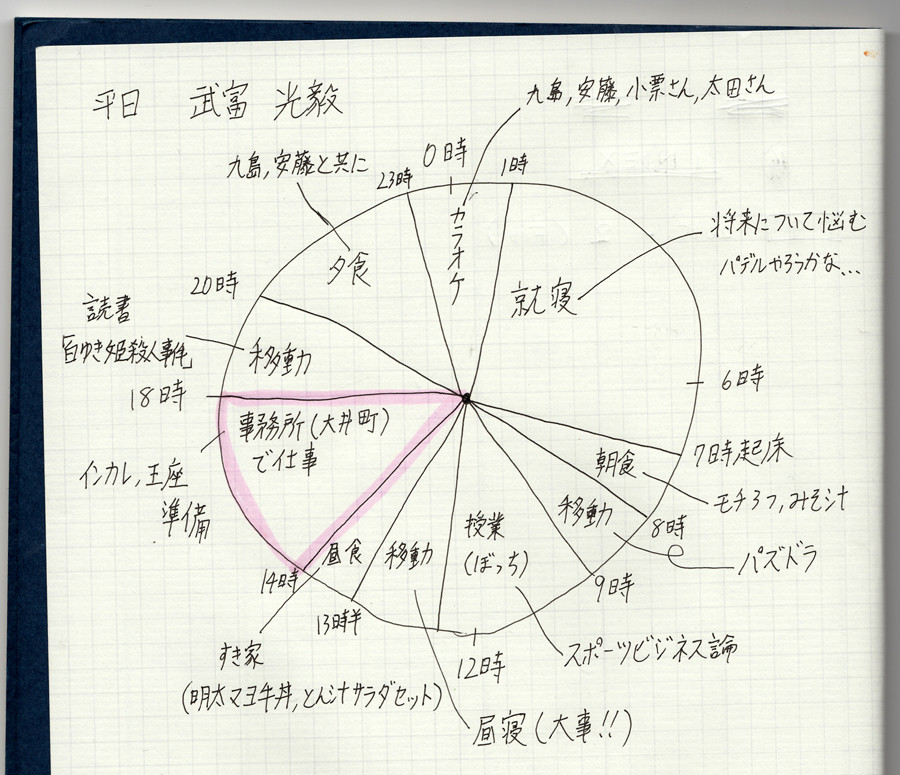 平日 武富 光毅
九島,安藤,小栗さん,太田さん
九島,安藤と共に
23時
0時
1時
カラオケ
夕食
将来について悩む
パデルやろうかな...
就寝
20時
読書
「白ゆき姫殺人事件」
移動
18時
6時
事務所(大井町)
で仕事
7時起床
朝食
インカレ,王座
準備
モチ3つ,みそ汁
移動
8時
パズドラ
授業
(ぼっち)
昼食
移動
14時
9時
13時半
12時
スポーツビジネス論
すき家
(明太マヨ牛丼,とん汁サラダセット)
昼寝(大事!!)